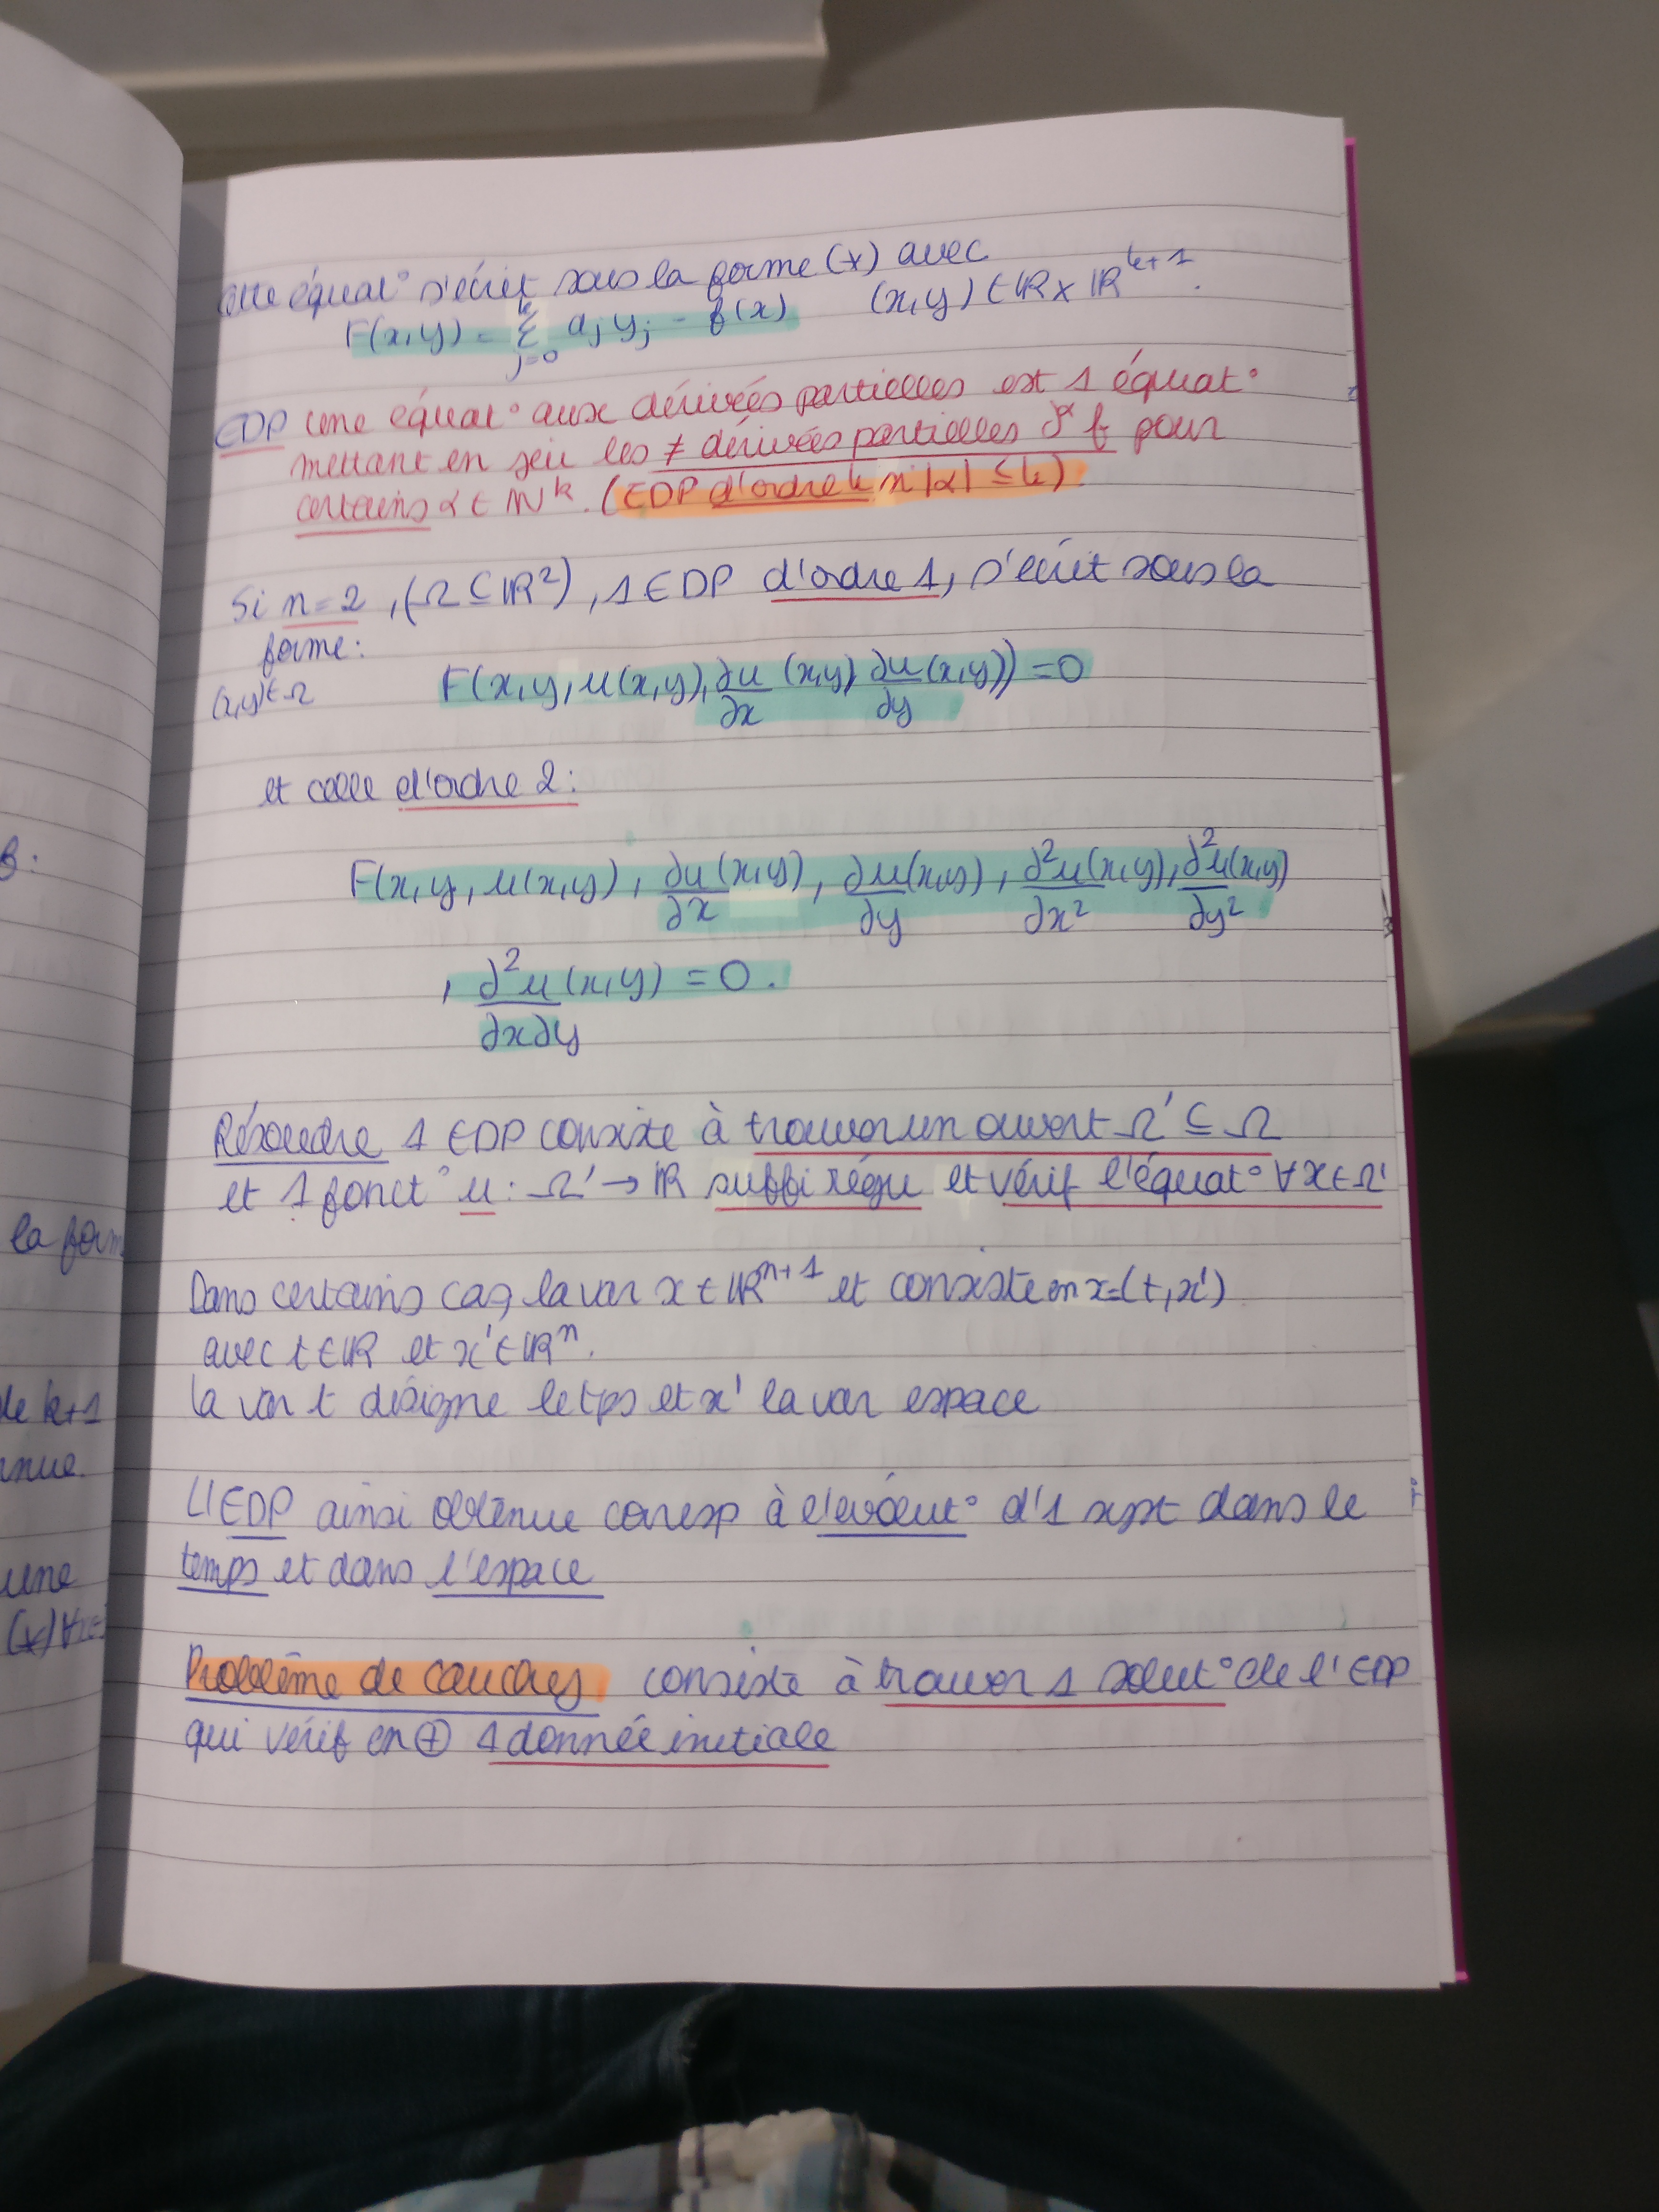 cette équat° s'écrit sous la forme (*) avec
F(x,y) = Σ_{j=0}^{k} a_j y_j - f(x)   (x,y) ∈ ℝ x ℝ^{k+1}.
EDP Une équat° aux dérivées partielles est 1 équat°
mettant en jeu les ≠ dérivées partielles ∂^α f pour
certains α ∈ ℕ^k. (EDP d'ordre k si |α| ≤ k)
Si n=2, (Ω ⊆ ℝ²), 1 EDP d'ordre 1, s'écrit sous la
forme:
(x,y) ∈ Ω   F(x,y,u(x,y), ∂u/∂x (x,y), ∂u/∂y (x,y)) = 0
et celle d'ordre 2:
F(x,y,u(x,y), ∂u/∂x (x,y), ∂u/∂y (x,y), ∂²u/∂x² (x,y), ∂²u/∂y² (x,y)
, ∂²u/∂x∂y (x,y) = 0.
Résoudre 1 EDP consiste à trouver un ouvert Ω' ⊆ Ω
et 1 fonct° u : Ω' → ℝ suffi régu et vérif l'équat° ∀x ∈ Ω'
Dans certains cas, la var x ∈ ℝ^{n+1} et consiste en x=(t,x')
avec t ∈ ℝ et x' ∈ ℝ^n.
la var t désigne le tps et x' la var espace
L'EDP ainsi obtenue corresp à l'évolut° d'1 syst dans le
temps et dans l'espace
Problème de Cauchy consiste à trouver 1 solut° de l'EDP
qui vérif en ⊕ 1 donnée initiale
la form
de k+1
nue.
une
(*) ∀x